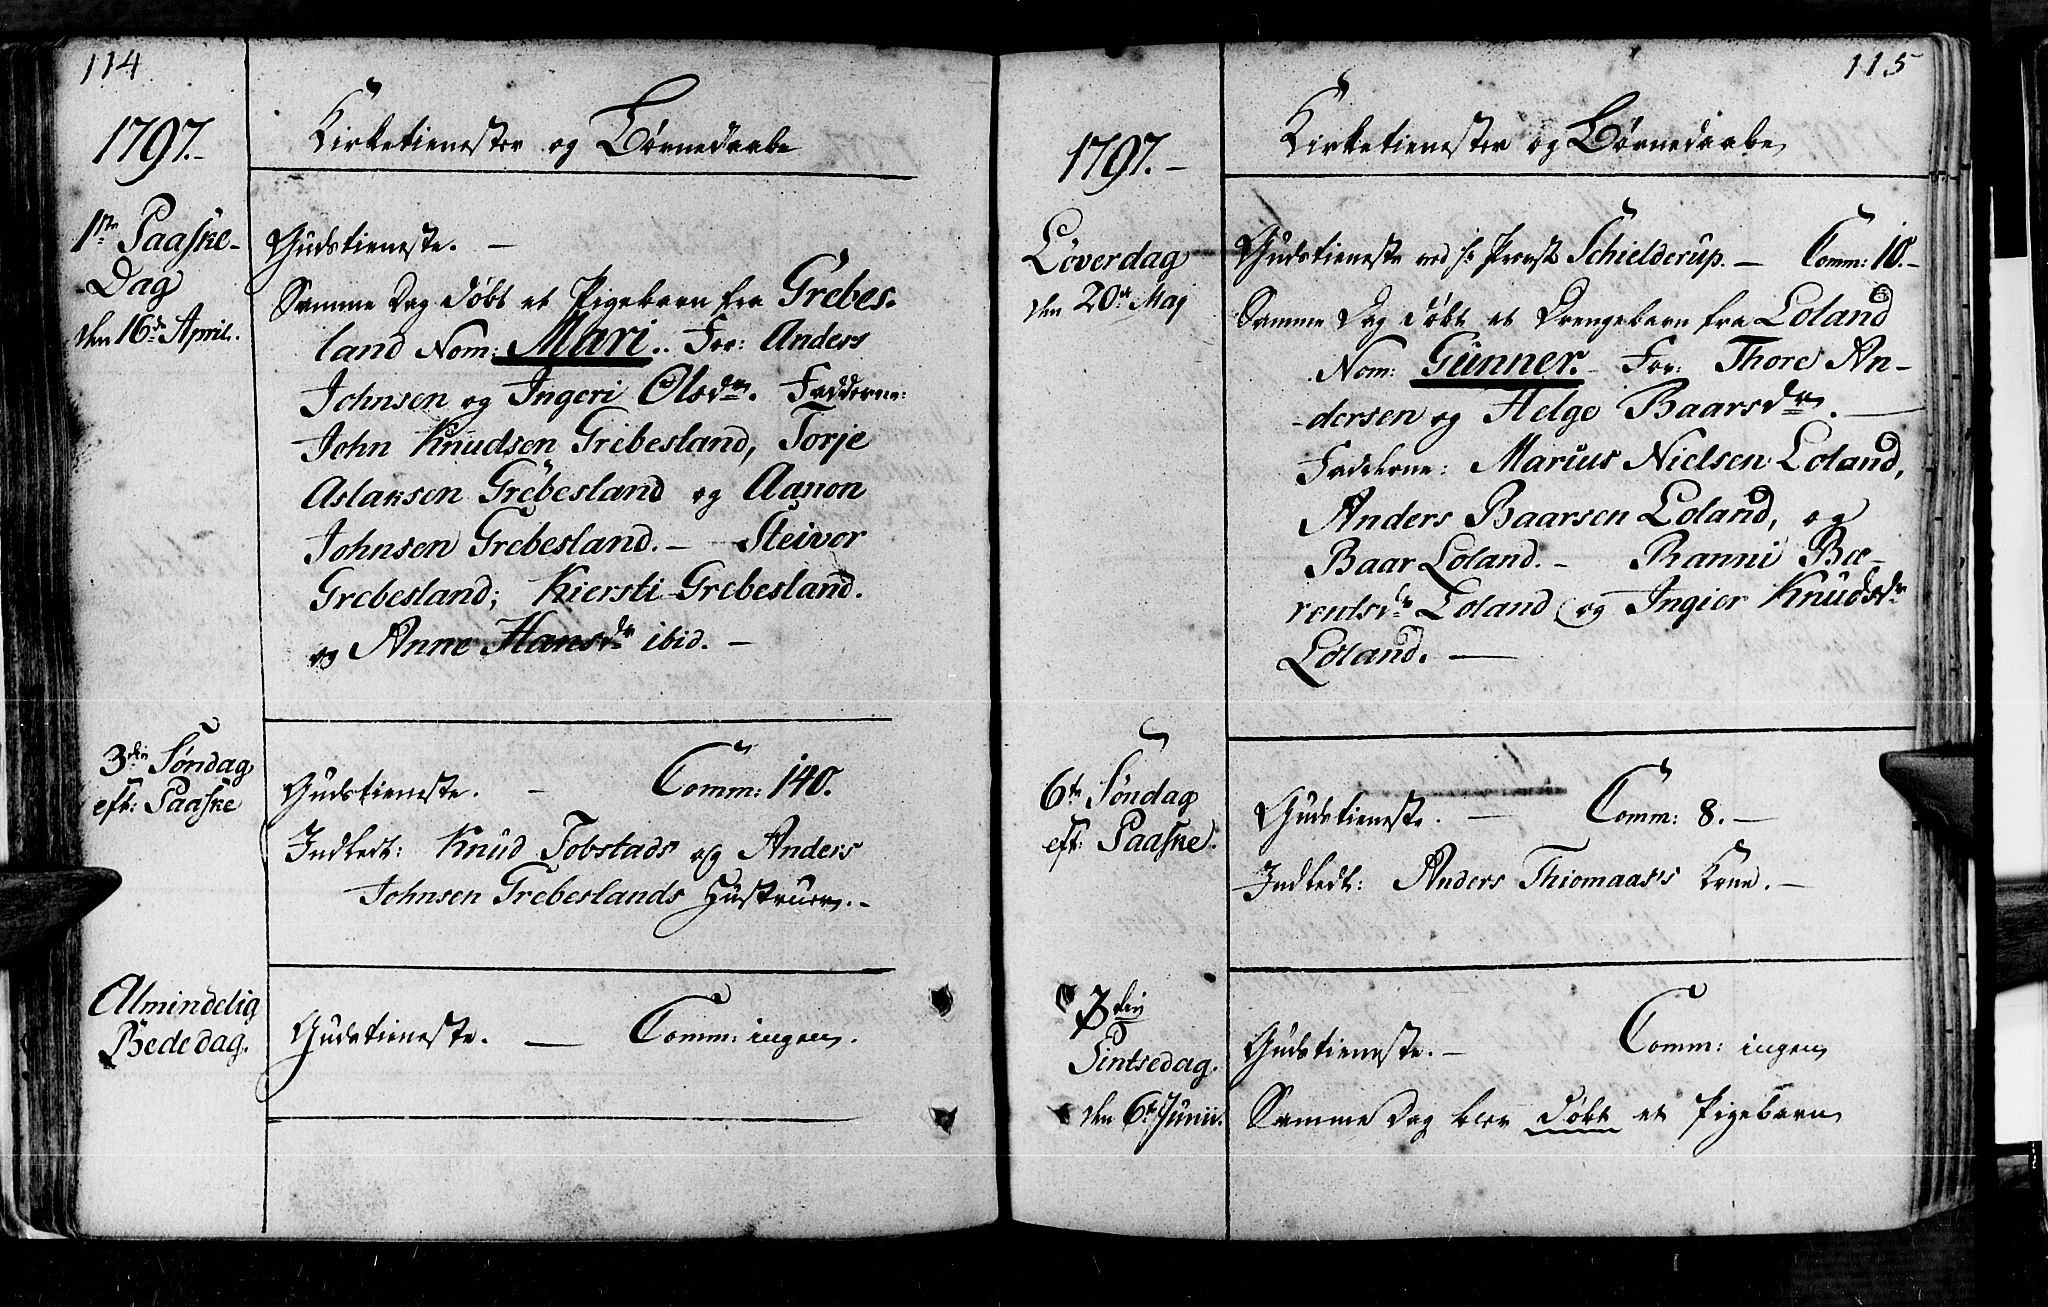 114
1797.-
Kirketienester og Børnedaabe
1ste Paaske-
Dag
den 16de April.
Gudstieneste. -
Samme Dag døbt et Pigebarn fra Grebes-
land Nom: Mari.. For: Anders
Johnsen og Ingeri Olsdr. Fadderne:
John Knudsen Grebesland, Torje
Aslaksen Grebesland og Aanon
Johnsen Grebesland. - Steivor
Grebesland; Kiersti Grebesland.
og Anne Hansdr ibid. -
3die Søndag
eft: Paaske
Gudstieneste. - Comm: 140.
Indledt: Knud Tobstads og Anders
Johnsen Grebeslands Hustruer. -
Almindelig
Bededag.
Gudstieneste. - Comm: ingen.
115
1797. -
Kirketienester og Børnedaabe
Løverdag
den 20de Maj
Gudstieneste ved Hr Provst Schielderup. - Comm: 10. -
Samme Dag døbt et Drengebarn fra Loland
Nom: Gunner. - For: Thore An-
dersen og Helge Baarsdr. -
Fadderne: Marius Nielsen Loland,
Anders Baarsen Loland, og
Baar Loland. - Ranni Bæ-
rentsdr Loland og Ingier Knudsdr
Loland. -
6te Søndag
eft: Paaske.
Gudstieneste. - Comm: 8. -
Indledt: Anders Thiomaas's Kone. -
3die
Pintsedag.
den 6te Junii.
Gudstieneste. - Comm: ingen
Samme Dag blev døbt et Pigebarn